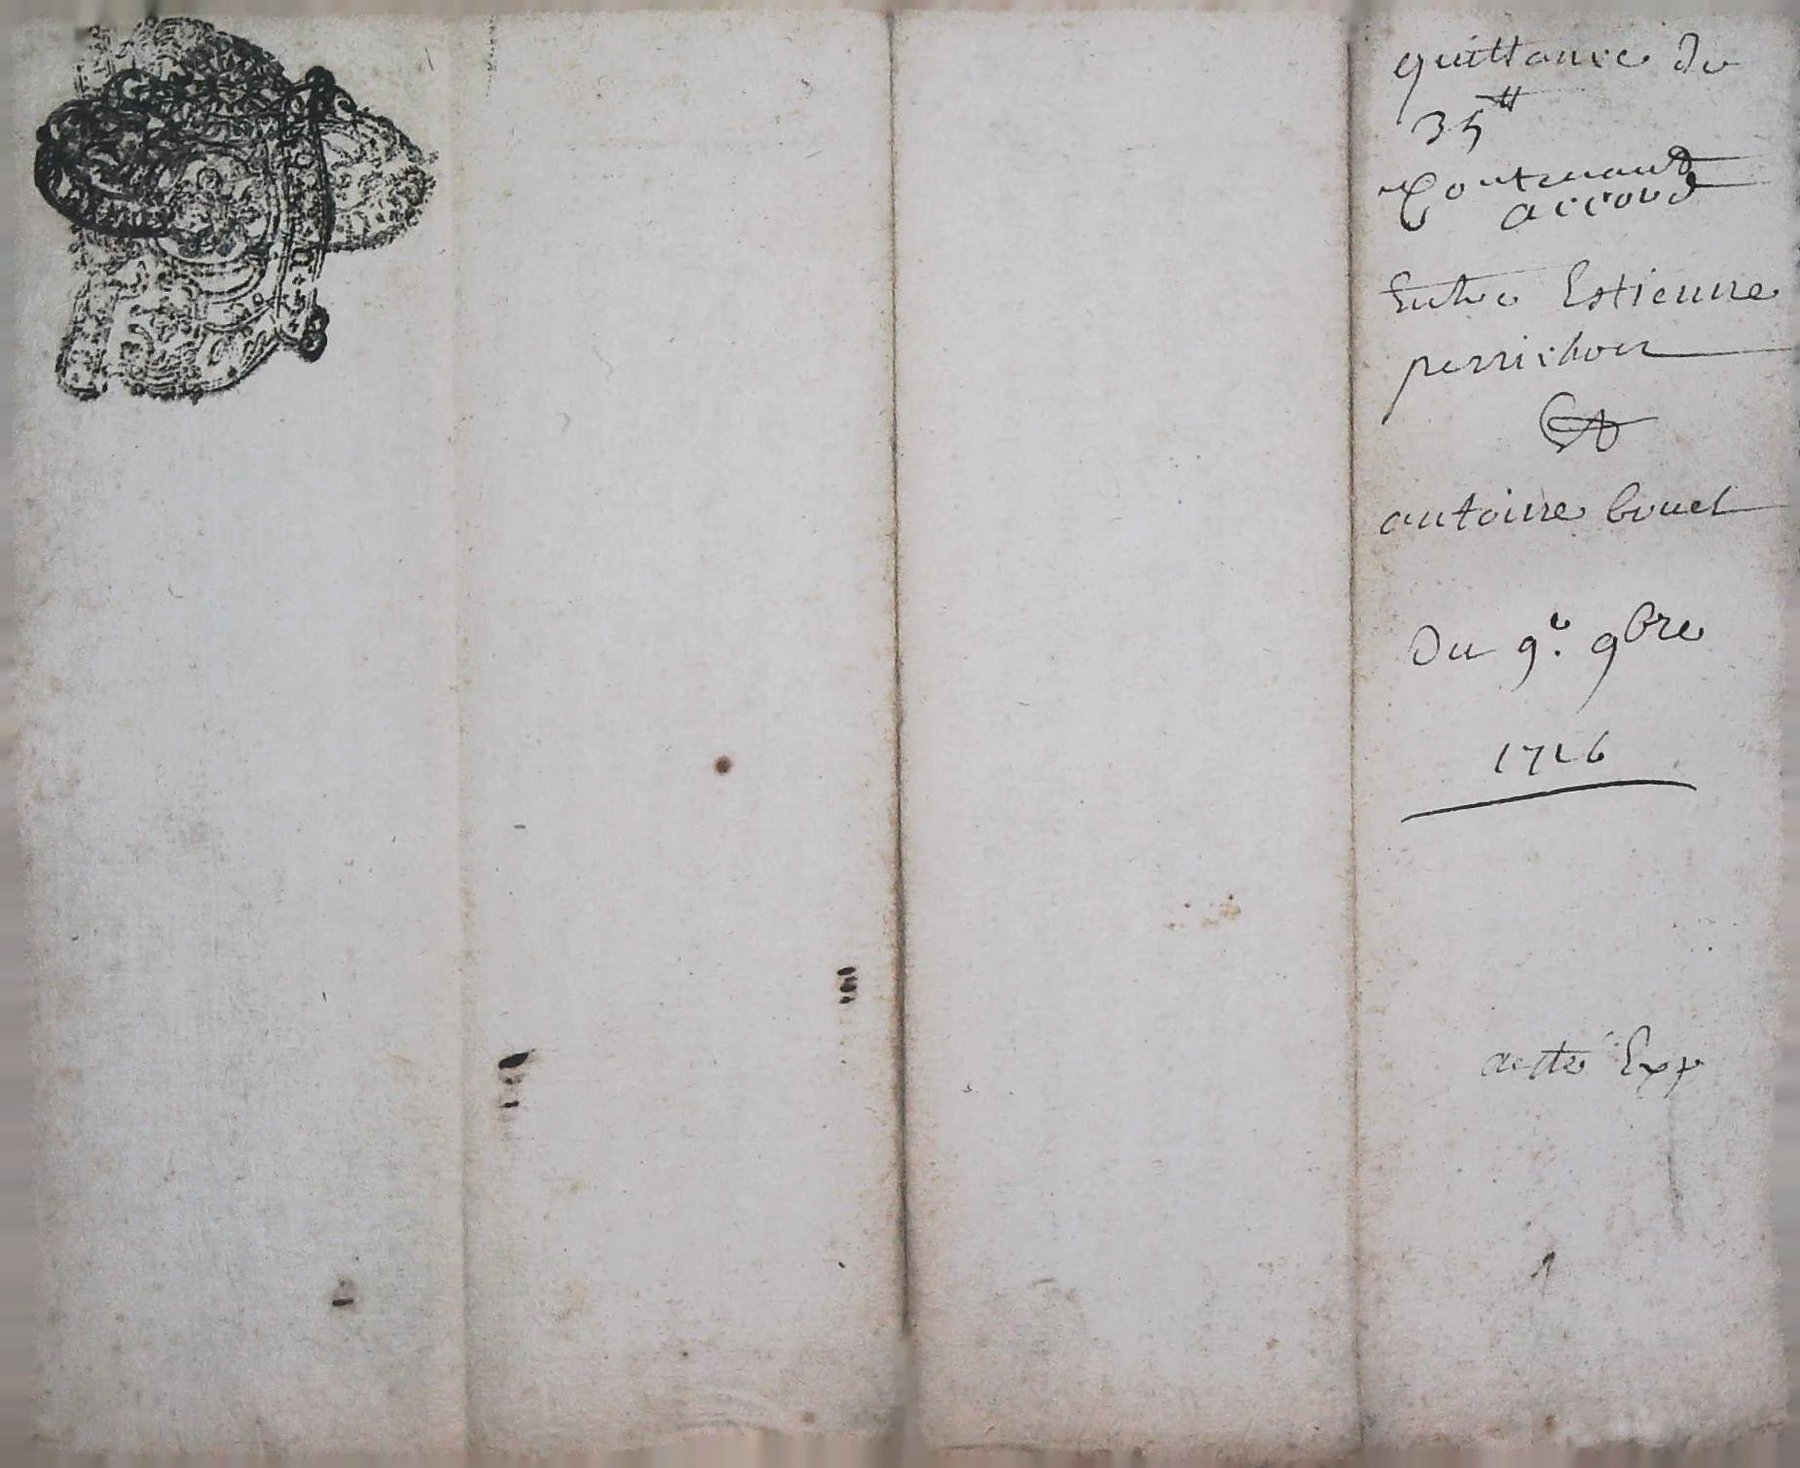 quittance de
35tt
Contenant
accord
Entre Estienne
perrichon
Et
antoine bruel
Du 9e. 9bre
1716
acte Exp
1